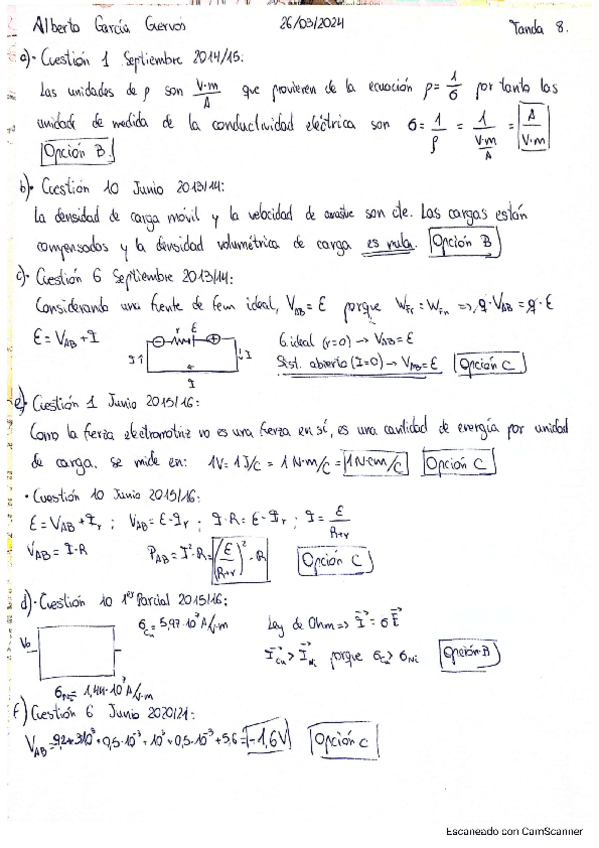 Alberto García Cuervos 26/03/2024 Tanda 8.
a)· Cuestión 1 Septiembre 2014/15:
Las unidades de ρ son V·m/A que provieren de la ecuación ρ = 1/σ por tanto las
unidade de medida de la conductividad eléctrica son σ = 1/ρ = 1/(V·m/A) = A/V·m
Opción B.
b)· Cuestión 10 Junio 2013/14:
La densidad de carga móvil y la velocidad de arrastre son cte. Las cargas están
compensados y la densidad volumétrica de carga es nula. Opción B
c)· Cuestión 6 Septiembre 2013/14:
Considerando una fuente de fem ideal, V_AB = ε porque W_Fr = W_Fm => q·V_AB = q·ε
ε = V_AB + I r ε G.ideal (r=0) → V_AB = ε
I↑ ↓I I Sist. abierto (I=0) → V_AB = ε Opción C
e)· Cuestión 1 Junio 2015/16:
Como la fuerza electromotriz no es una fuerza en sí, es una cantidad de energía por unidad
de carga. se mide en: 1V = 1 J/C = 1 N·m/C = 1 N·cm/C Opción C
· Cuestión 10 Junio 2015/16:
ε = V_AB + I_r ; V_AB = ε - I_r ; I·R = ε - I_r ; I = ε/(R+r)
V_AB = I·R P_AB = I²·R = (ε/(R+r))²·R Opción C
d)· Cuestión 10 1er Parcial 2015/16:
σ_Cu = 5,97·10⁷ A/V·m Ley de Ohm => I = σE
V₀ I_Cu > I_Ni porque σ_Cu > σ_Ni Opción B
σ_Ni = 1,44·10⁷ A/V·m
f) Cuestión 6 Junio 2020/21:
V_AB = -9,2+3·10³·0,5·10⁻³+10³·0,5·10⁻³+5,6 = -1,6V Opción C
Escaneado con CamScanner